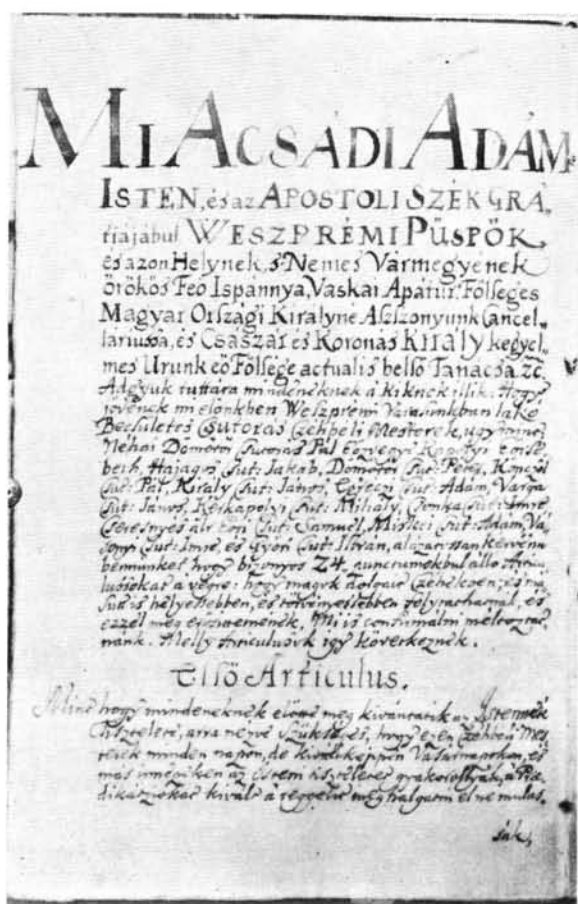 MI ACSÁDI ÁDÁM
ISTEN, és az APOSTOLI SZÉK GRÁ,
tiájábul WESZPRÉMI PÜSPÖK,
és azon Helynek, s Nemes Vármegyének
örökös Feö Ispannya, Vaskai Apátur, Fölséges
Magyar Országi Királyné Aszszonyunk Cancel,,
láriussa, és Császár és Koronás Király kegyel,
mes Urunk eö Fölsége actualis belső Tanácsa. zc.
Adgyuk tuttára mindeneknek a kiknek illik: Hogy
jövének mi előnkben Weszprémi Városunkban lakó
Becsületes Csutorás Czehbeli Mesterek, ugymint
Néhai Dömötör Csutorás Pál özvegyi
Hajagos Csut: Jakab, Dömötör Csut: Péter,
Csut: Pál, Király Csut: János, Csut: Ádám, Varga
Csut: János, Csut: Mihály, Csonka Csut: Imre,
Cseresnyés Csut: Samuel, Csut: Ádám,
Csut: Imre, és Győri Csut: István, alázatossan kérvén
bennünket hogy bizonyos 24. punctumokbul álló Articu,
luosokat a végre: hogy magok dolgait Czehekben,
is helyessebben, és törvényessebben folytathatnák, és
ezzel meg Mi is confirmálni méltoztat,
nánk. Melly Articulusok igy következnek.
Első Articulus.
Mint hogy mindeneknek előtte meg kivántatik az Istennek
tisztelete, arra nézve szükséges, hogy ezen Czehbéli Mes,
terek minden napon, de kiváltképpen Vasárnapokon, és
más innepeken az Isteni tiszteletet gyakorollyák, a Præ,
dikátziókat kivált a reggelit meghalgatni el ne mulas,
sák,